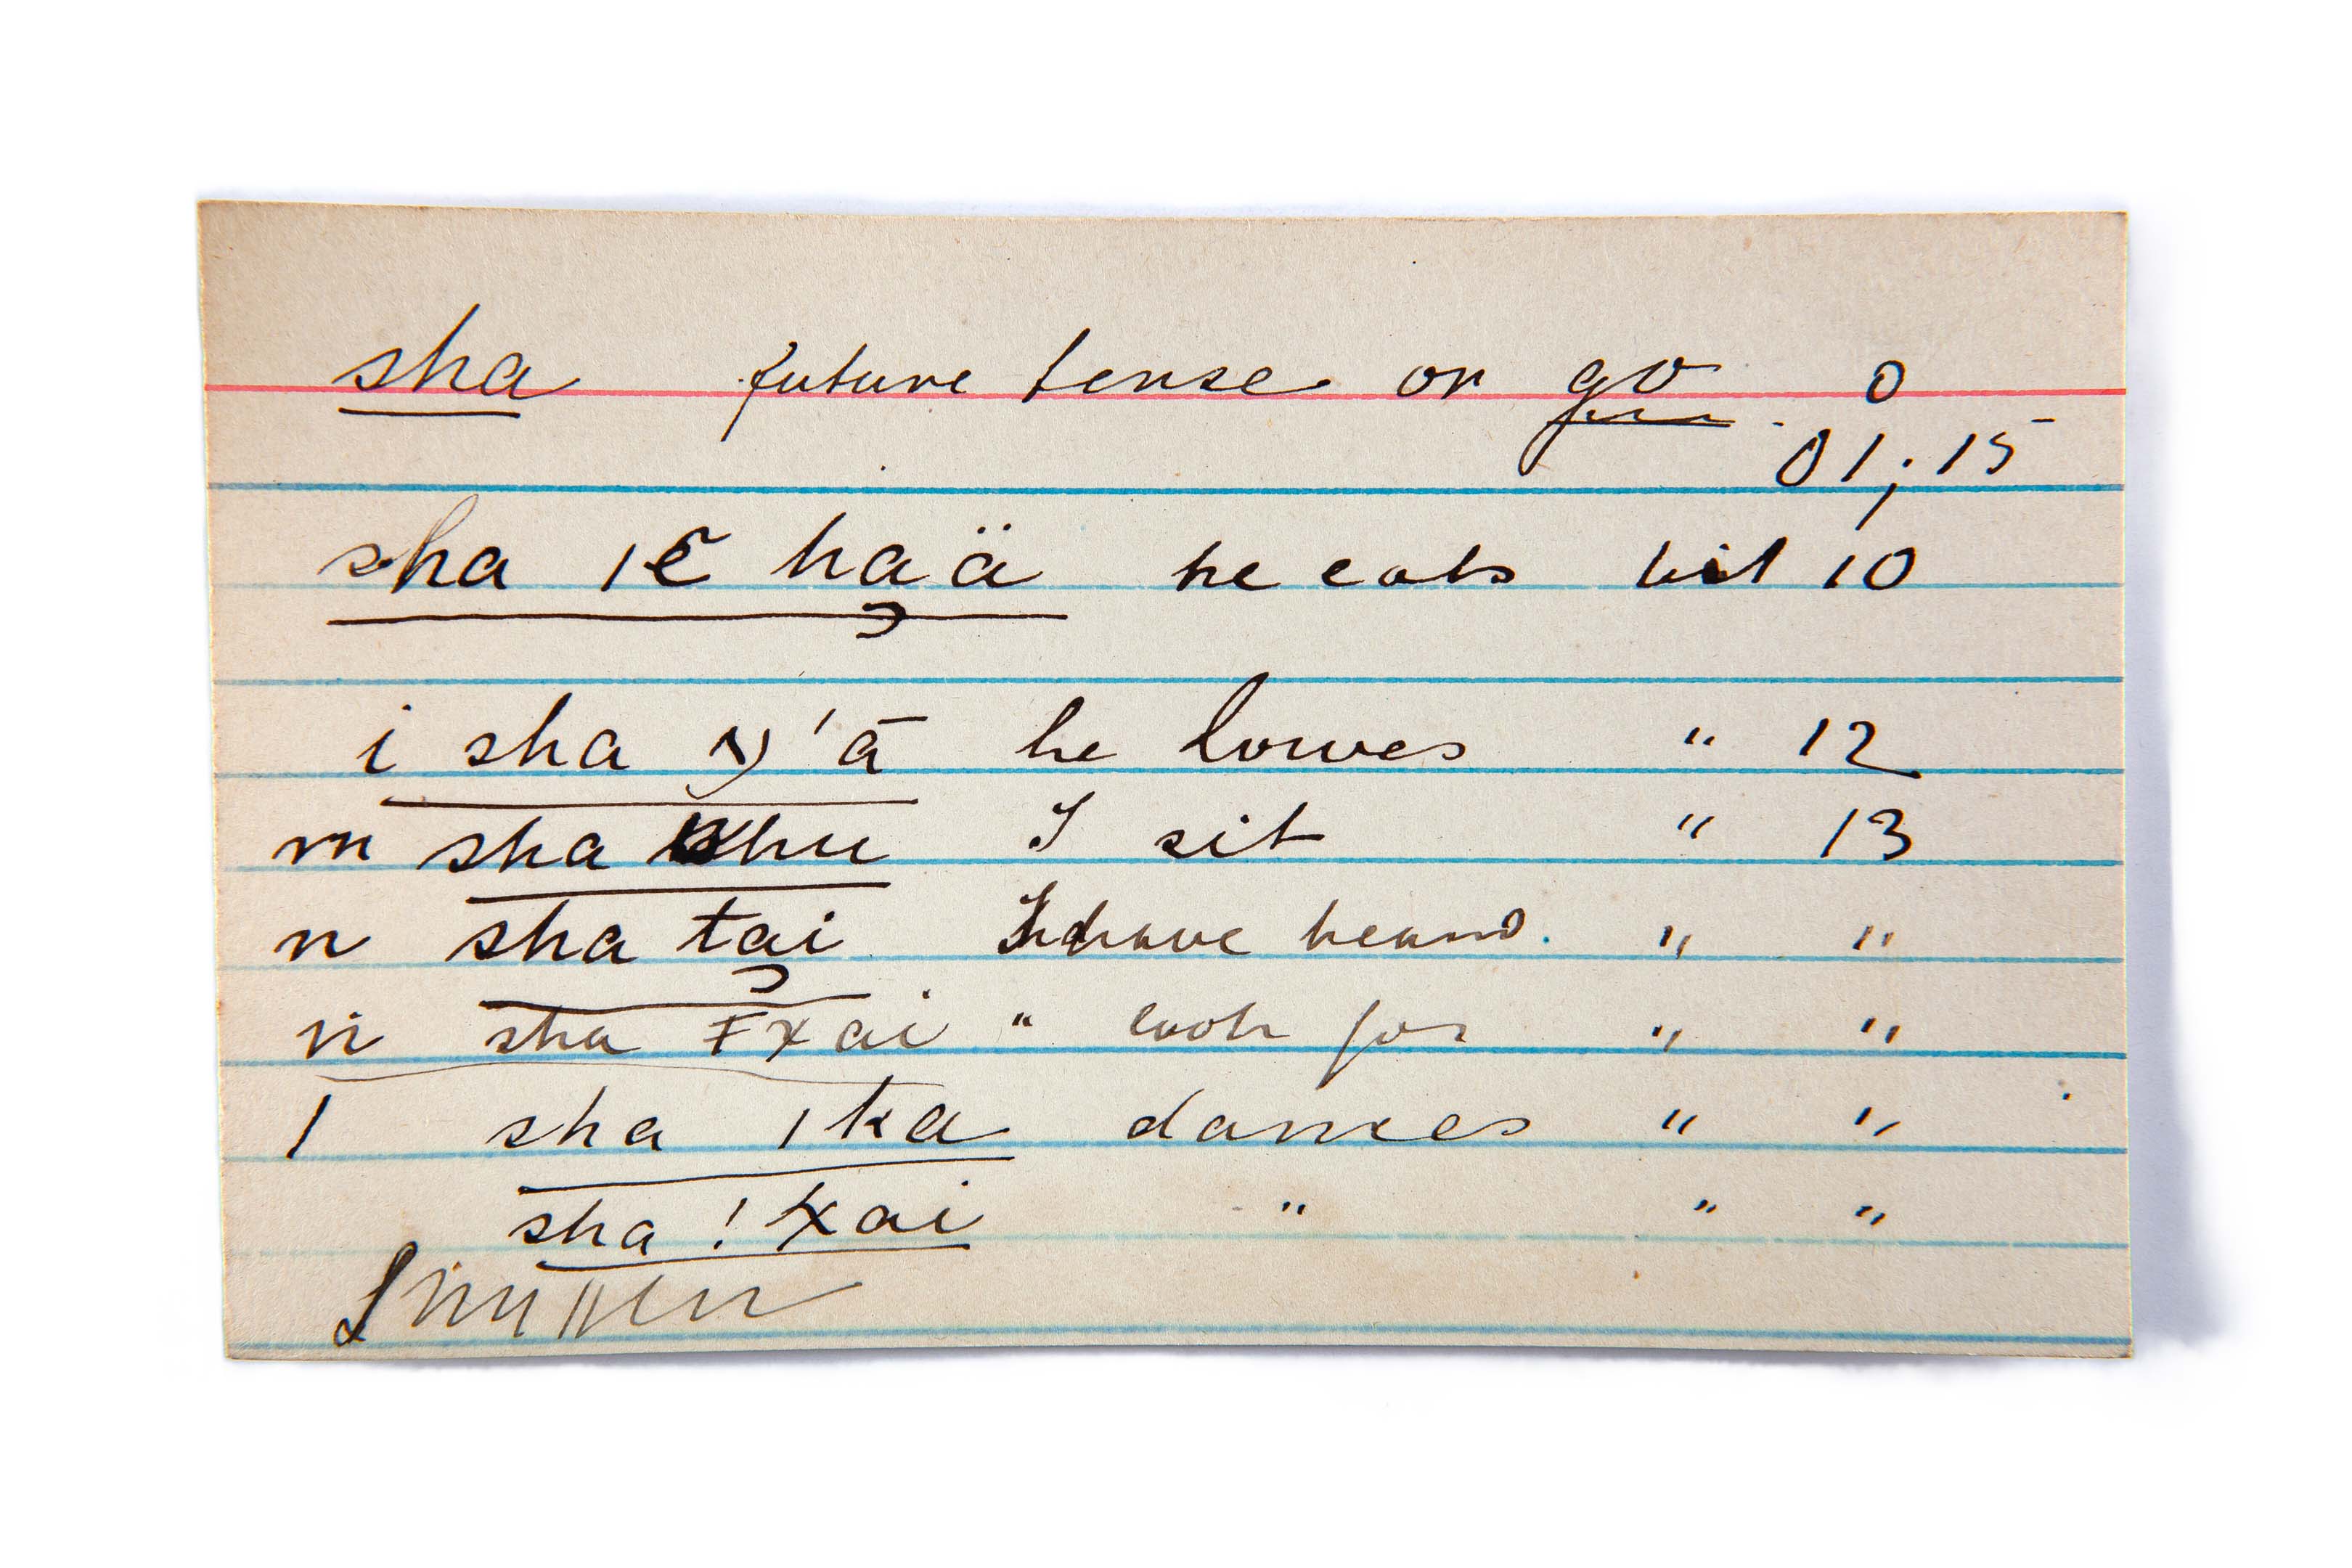 sha future tense or go 0
01; 15
sha ha̡ä he eats 10
i sha he " 12
m sha I sit " 13
n sha ta̡i have heard. " "
sha ǂxai " look for " "
sha ǀka dances " "
sha ! " " "